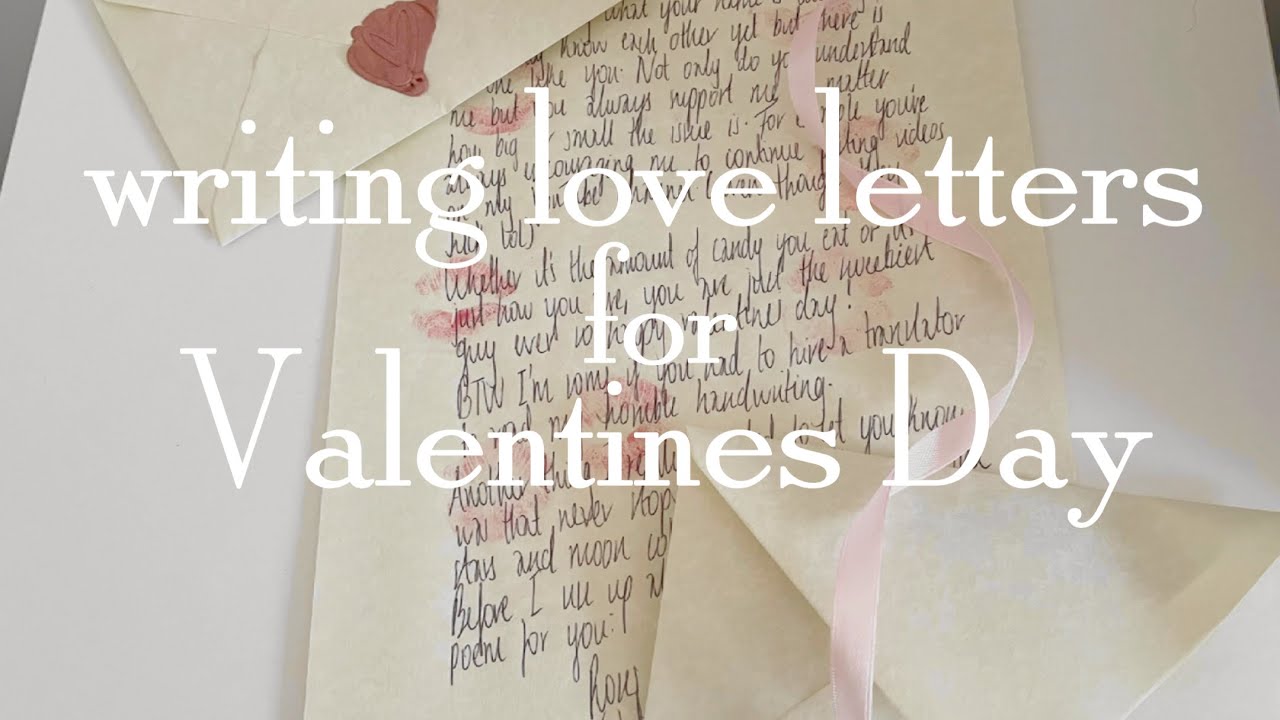 writing love letters
for
Valentines Day
what your name is
know each other yet but here is
like you. Not only do you understand
me but you always support me matter
how big small the issue is. For you're
always encouraging me to continue videos
on my even though
suck lol)
Whether it's the amount of candy you eat or
just how you are, you are just the sweetest
guy ever so happy valentines day!
BTW I'm sorry if you had to hire a translator
read my horrible handwriting.
Another thing let you know
that never stop
stars and moon
Before I up
poem for you: